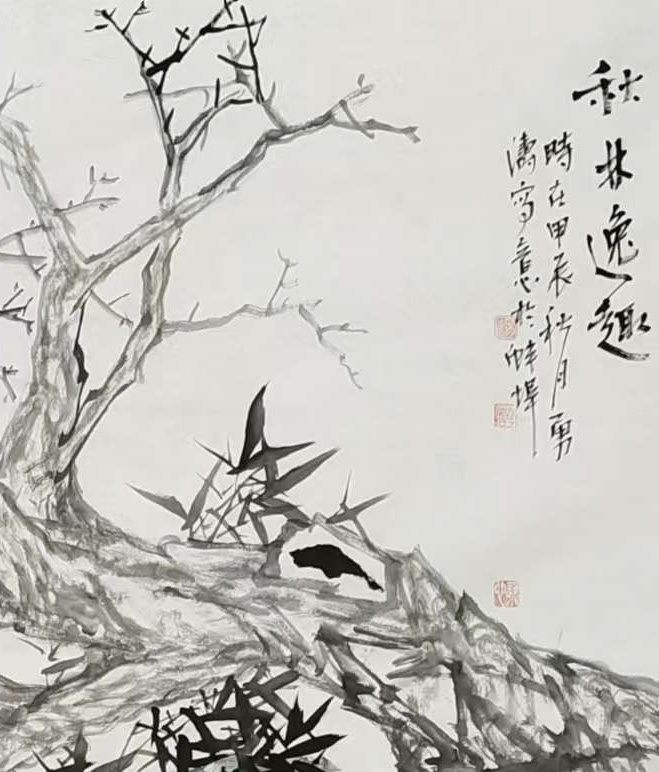 秋林逸趣
時在甲辰秋月勇
濤寫意於蚌埠